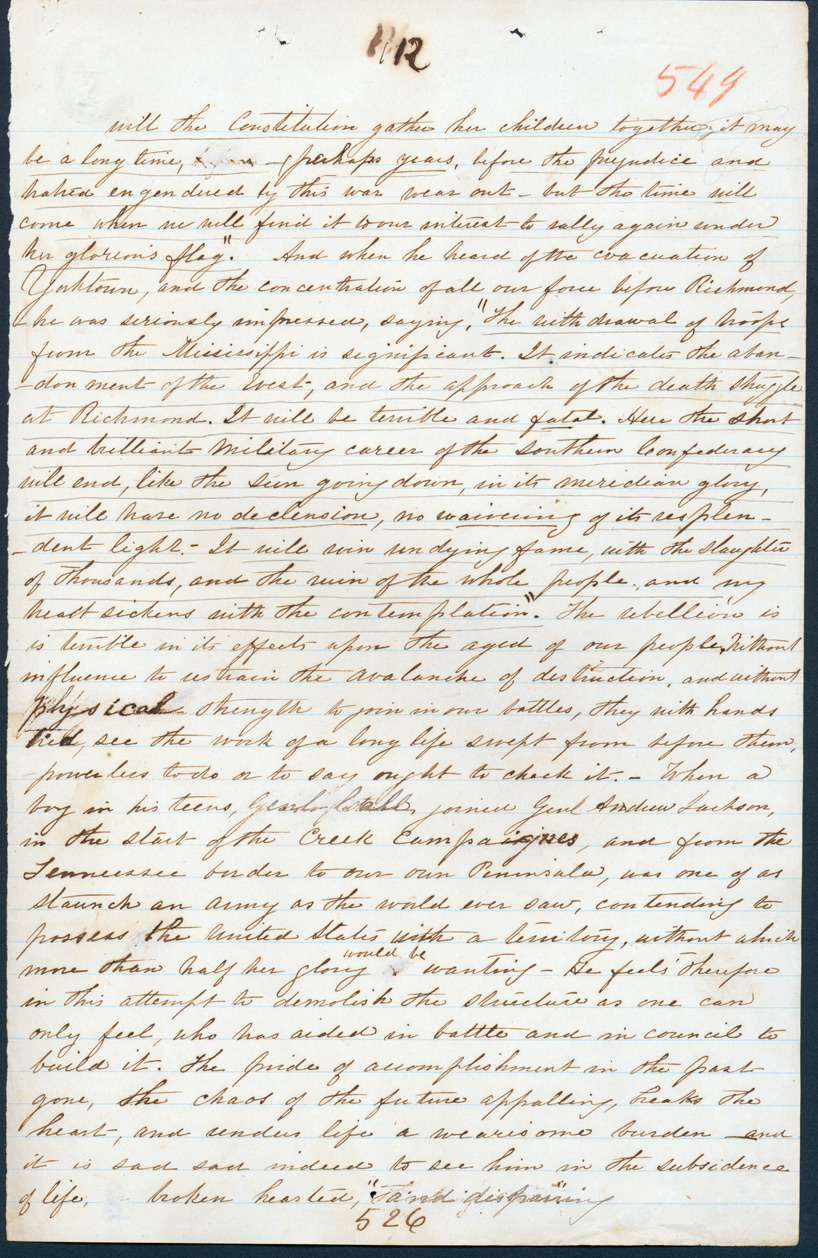 112
549
will the Constitution gather her children together, it may
be a long time, — perhaps years, before the prejudice and
hatred engendered by this war wear out — but the time will
come when we will find it to our interest to rally again under
her glorious flag". And when he heard of the evacuation of
Yorktown, and the concentration of all our force before Richmond,
he was seriously impressed, saying, "The withdrawal of troops
from the Mississippi is significant. It indicates the aban-
-donment of the West, and the approach of the death struggle
at Richmond. It will be terrible and fatal. Here the short
and brilliant military career of the Southern Confederacy
will end, like the sun going down, in its meridian glory,
it will have no declension, no waivering of its resplen-
-dent light — It will win undying fame, with the slaughter
of thousands, and the ruin of the whole people. and my
heart sickens with the contemplation". The rebellion is
is terrible in its effects upon the aged of our people, Without
influence to restrain the avalanche of destruction, and without
physical strength to join in our battles, they with hands
tied, see the work of a long life swept from before them,
powerless to do or to say ought to check it. — When a
boy in his teens, joined Genl Andrew Jackson,
in the start of the Creek Campaignes, and from the
Tennessee border to our own Peninsula, was one of as
staunch an army as the world ever saw, contending to
possess the United States with a territory, without which
more than half her glory would be wanting — He feels therefore
in this attempt to demolish the structure as one can
only feel, who has aided in battle and in council to
build it. The pride of accomplishment in the past
gone, the chaos of the future appalling, breaks the
heart, and renders life a wearisome burden — and
it is sad sad indeed to see him in the subsidence
of life, broken hearted, "and dispairing
526